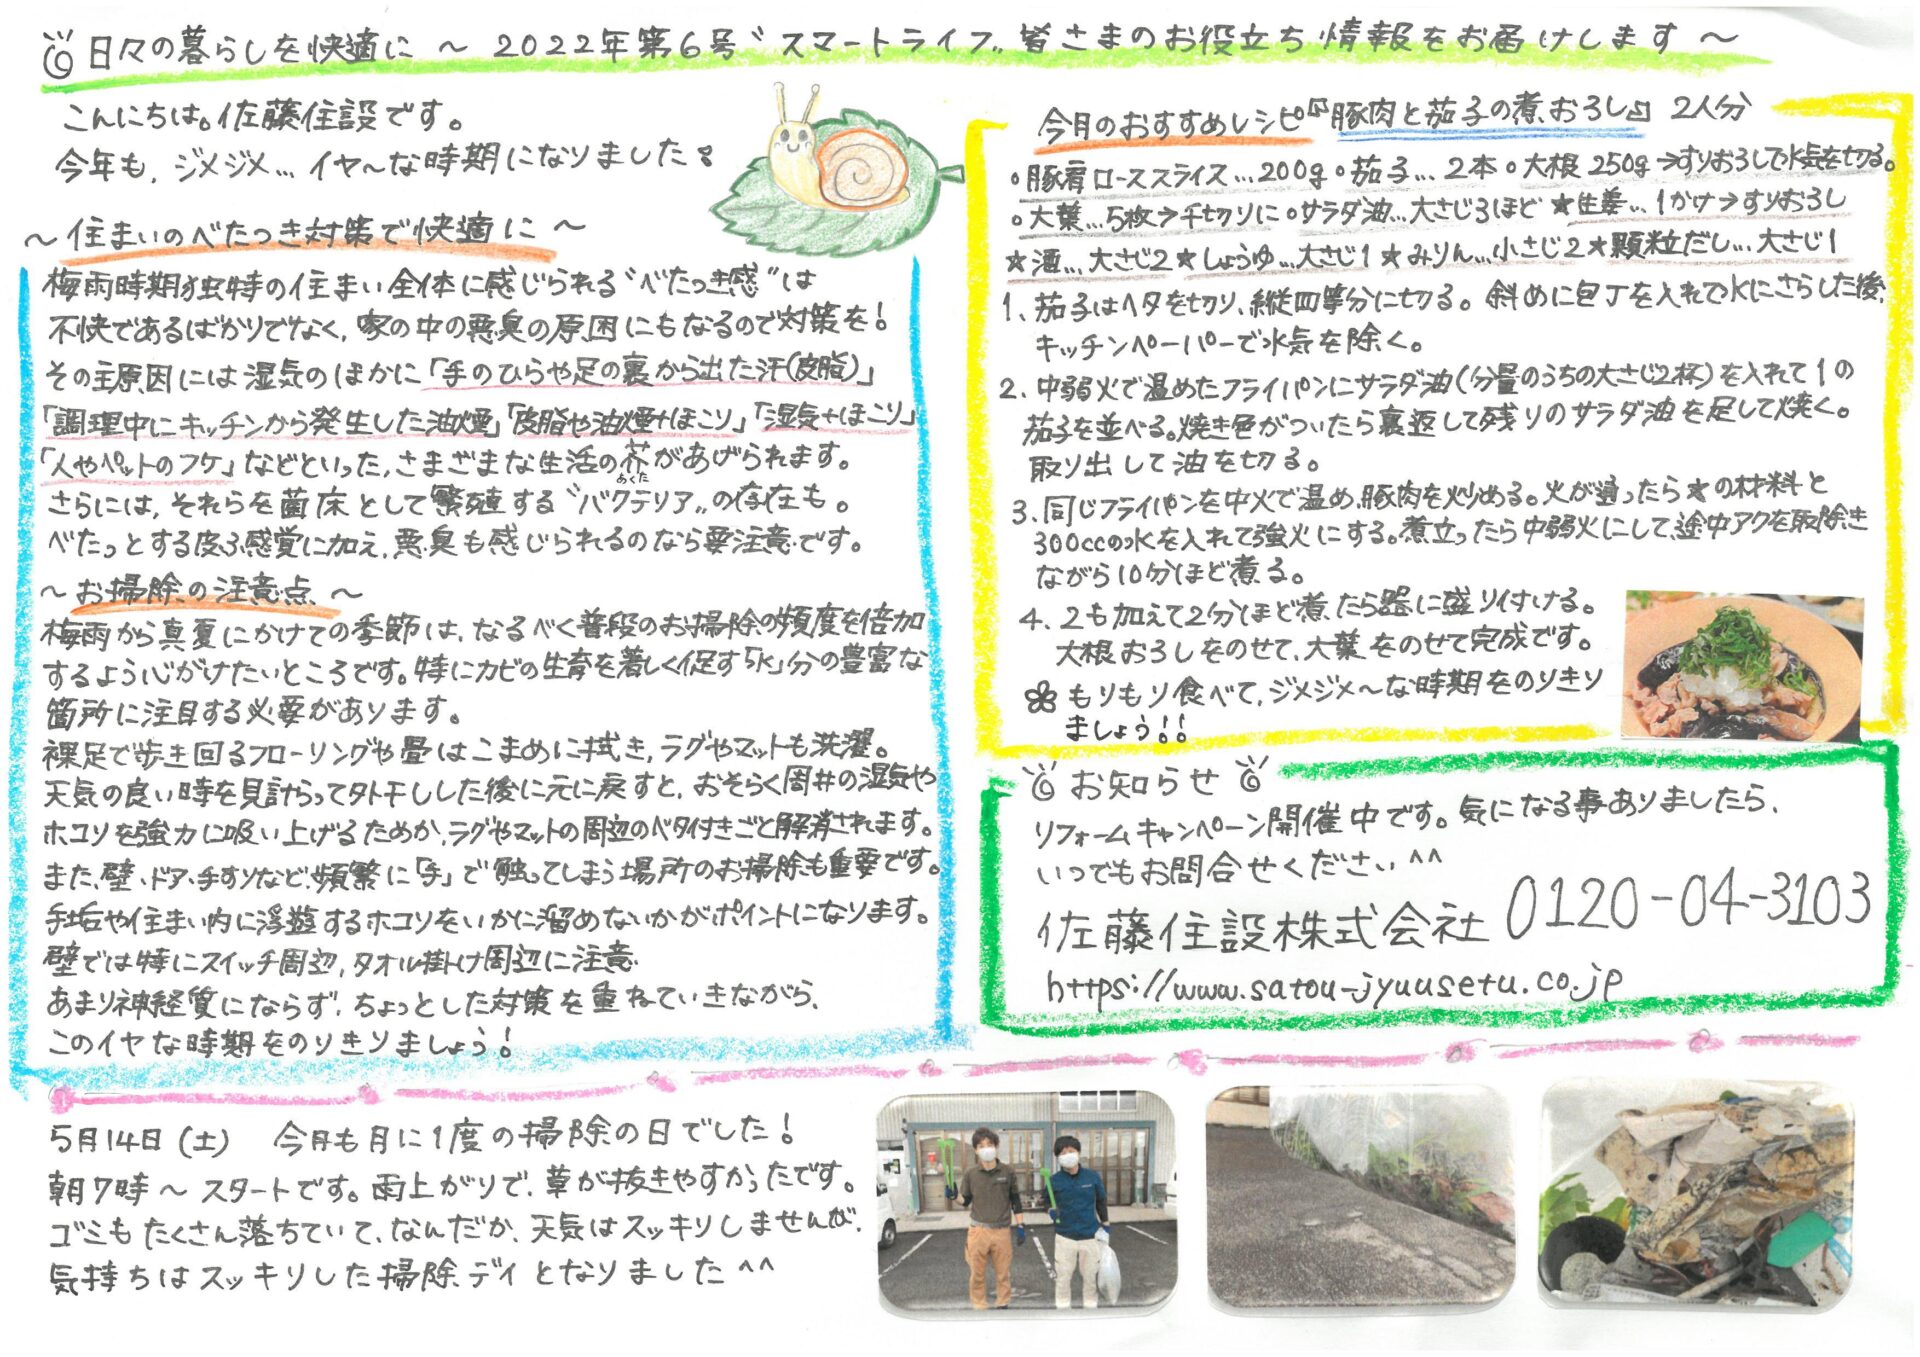 日々の暮らしを快適に ～ 2022年第6号〝スマートライフ〟皆さまのお役立ち情報をお届けします ～
こんにちは。佐藤住設です。
今年も、ジメジメ…イヤ～な時期になりました
～ 住まいのべたつき対策で快適に ～
梅雨時期独特の住まい全体に感じられる〝べたつき感〟は
不快であるばかりでなく、家の中の悪臭の原因にもなるので対策を!
その主原因には湿気のほかに「手のひらや足の裏から出た汗(皮脂)」
「調理中にキッチンから発生した油煙」「皮脂や油煙+ほこり」「湿気+ほこり」
「人やペットのフケ」などといった、さまざまな生活の芥があげられます。
あくた
さらには、それらを菌床として繁殖する〝バクテリア〟の存在も。
べたっとする皮ふ感覚に加え、悪臭も感じられるのなら要注意です。
～ お掃除の注意点 ～
梅雨から真夏にかけての季節は、なるべく普段のお掃除の頻度を倍加
するよう心がけたいところです。特にカビの生育を著しく促す「水」分の豊富な
箇所に注目する必要があります。
裸足で歩き回るフローリングや畳はこまめに拭き、ラグやマットも洗濯。
天気の良い時を見計らって外干しした後に元に戻すと、おそらく周井の湿気や
ホコリを強力に吸い上げるためか、ラグやマットの周辺のベタ付きごと解消されます。
また、壁、ドア、手すりなど、頻繁に「手」で触ってしまう場所のお掃除も重要です。
手垢や住まい内に浮遊するホコリをいかに溜めないかがポイントになります。
壁では特にスイッチ周辺、タオル掛け周辺に注意
あまり神経質にならず、ちょっとした対策を重ねていきながら、
このイヤな時期をのりきりましょう!
今月のおすすめレシピ『豚肉と茄子の煮おろし』 2人分
○豚肩ローススライス…200g ○茄子…2本 ○大根250g→すりおろして水気を切る。
○大葉…5枚→千切りに ○サラダ油…大さじ3ほど ★生姜…1かけ→すりおろし
★酒…大さじ2 ★しょうゆ…大さじ1 ★みりん…小さじ2 ★顆粒だし…大さじ1
1、茄子はヘタを切り、縦四等分に切る。斜めに包丁を入れて水にさらした後、
キッチンペーパーで水気を除く。
2. 中弱火で温めたフライパンにサラダ油(分量のうちの大さじ2杯)を入れて1の
茄子を並べる。焼き色がついたら裏返して残りのサラダ油を足して焼く。
取り出して油を切る。
3、同じフライパンを中火で温め、豚肉を炒める。火が通ったら★の材料と
300ccの水を入れて強火にする。煮立ったら中弱火にして、途中アクを取除き
ながら10分ほど煮る。
4、2も加えて2分ほど煮たら器に盛り付ける。
大根おろしをのせて、大葉をのせて完成です。
もりもり食べて、ジメジメ～な時期をのりきり
ましょう!!
お知らせ
リフォームキャンペーン開催中です。気になる事ありましたら、
いつでもお問合せください^^
佐藤住設株式会社 0120-04-3103
https://www.satou-jyuusetu.co.jp
5月14日(土) 今月も月に1度の掃除の日でした!
朝7時～スタートです。雨上がりで、草が抜きやすかったです。
ゴミもたくさん落ちていて、なんだか、天気はスッキリしませんが、
気持ちはスッキリした掃除デイとなりました^^